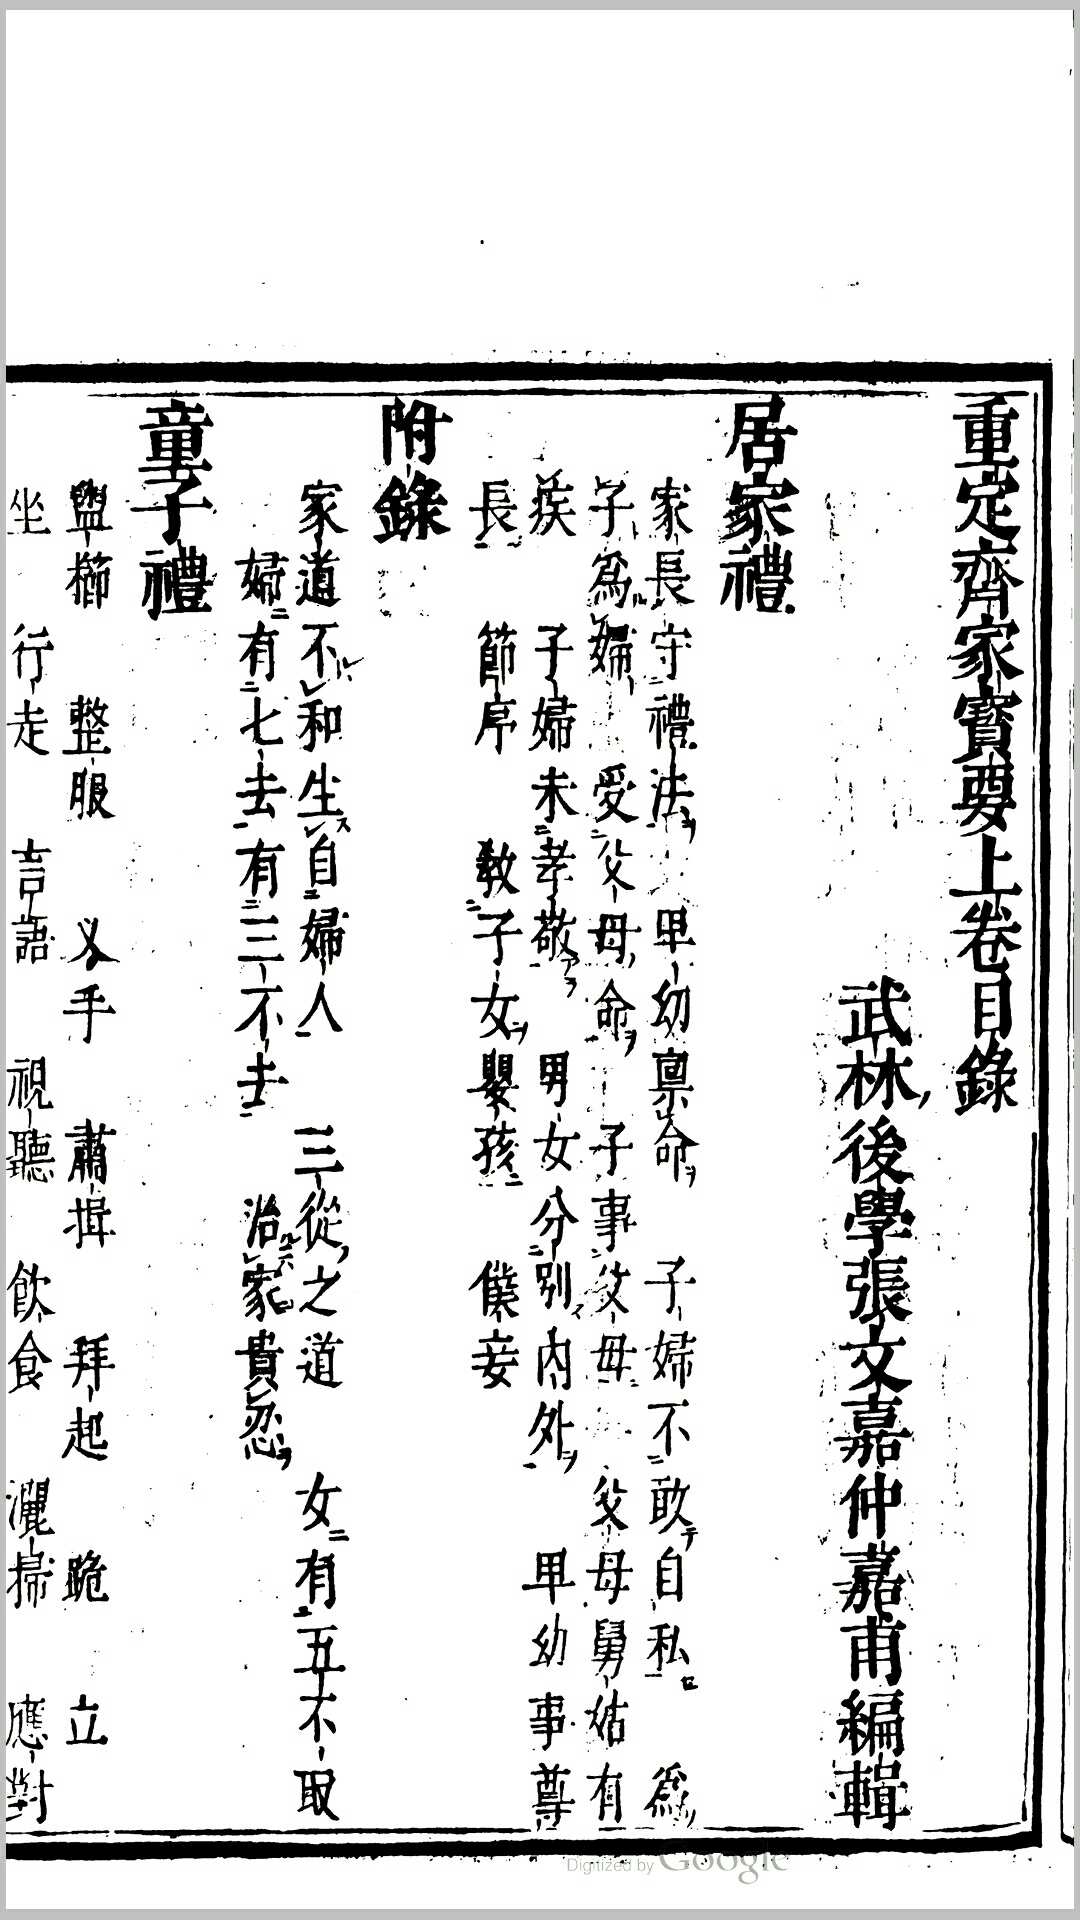 重定齊家寶要上卷目錄
武林後學張文嘉仲嘉甫編輯
居家禮
家長守禮法 卑幼稟命 子婦不敢自私 爲
子爲婦 受父母命 子事父母 父母舅姑有
疾 子婦未孝敬 男女分別內外 卑幼事尊
長 節序 教子女嬰孩 僕妾
附錄
家道不和生自婦人 三從之道 女有五不取
婦有七去有三不去 治家貴忍
童子禮
盥櫛 整服 叉手 肅揖 拜起 跪 立
坐 行走 言語 視聽 飲食 灑掃 應對
Digitized by Google